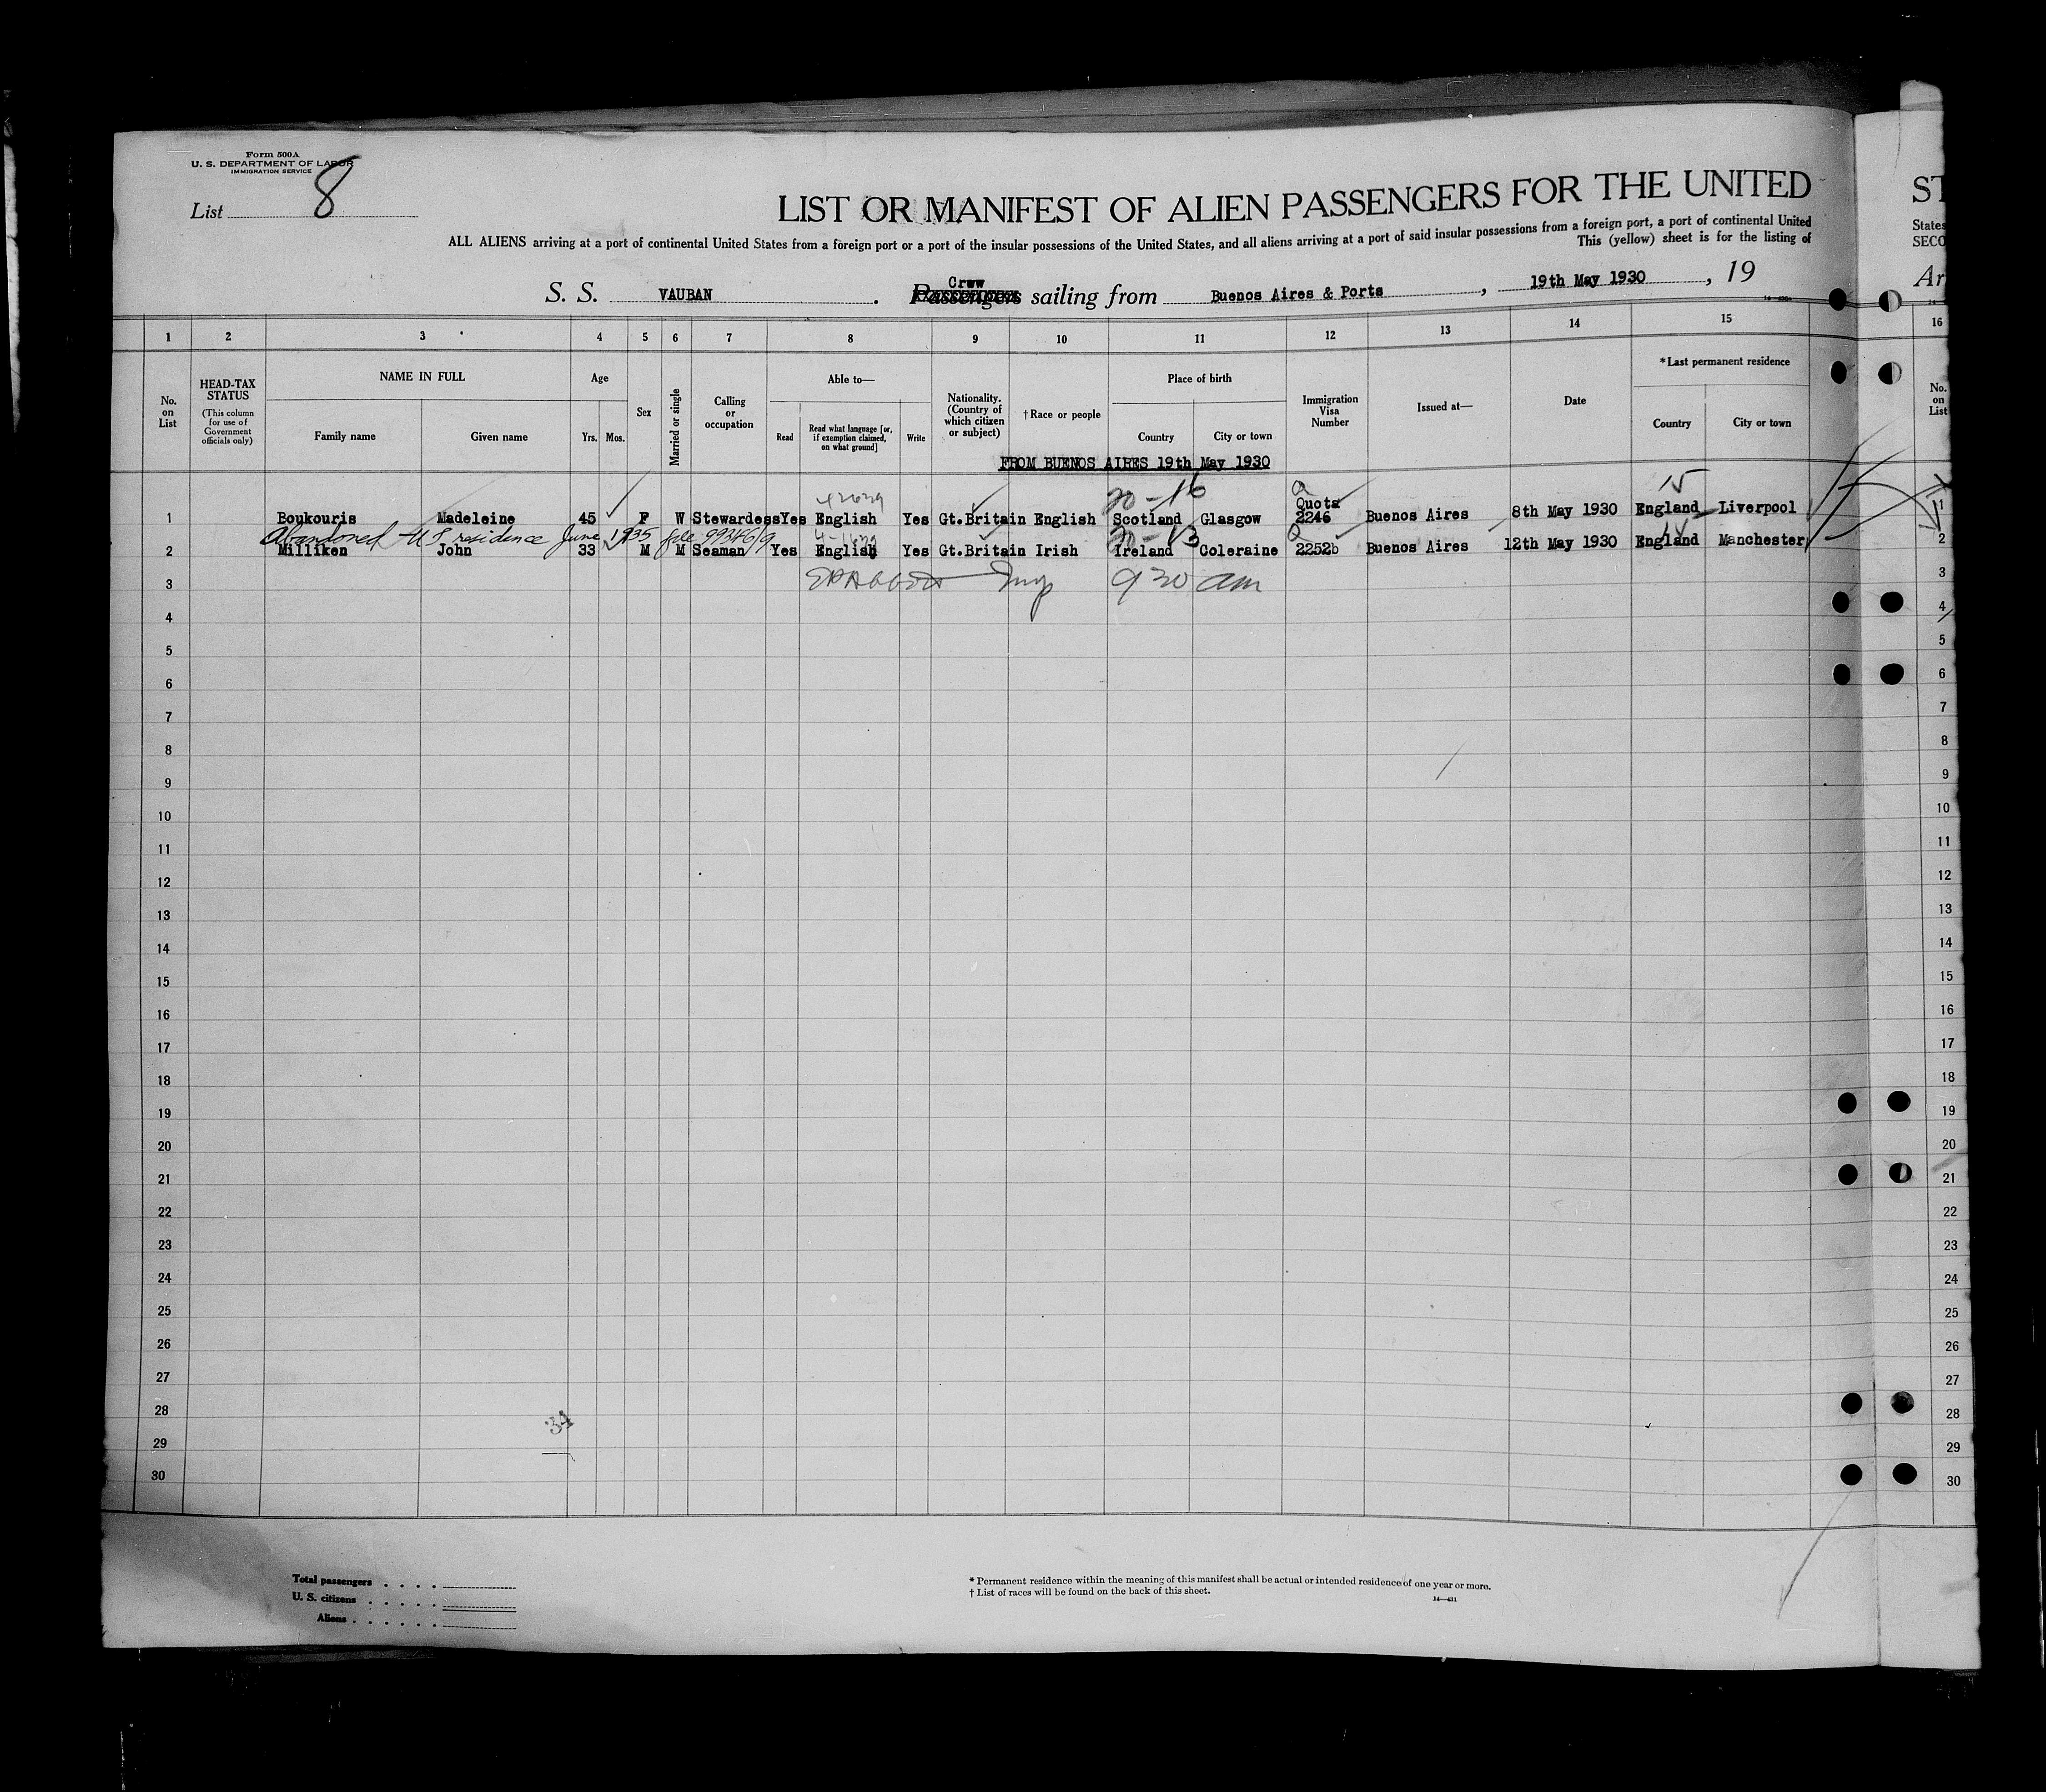 Form 500A
U. S. DEPARTMENT OF LABOR
IMMIGRATION SERVICE
List 8
LIST OR MANIFEST OF ALIEN PASSENGERS FOR THE UNITED
ST
ALL ALIENS arriving at a port of continental United States from a foreign port or a port of the insular possessions of the United States, and all aliens arriving at a port of said insular possessions from a foreign port, a port of continental United
States
This (yellow) sheet is for the listing of
SECO
S. S. VAUBAN . Passengers Crew sailing from Buenos Aires & Ports , 19th May 1930 , 19
Ar
1 2 3 4 5 6 7 8 9 10 11 12 13 14 15 16
No. on List
HEAD-TAX STATUS
(This column for use of Government officials only)
NAME IN FULL
Family name Given name
Age
Yrs. Mos.
Sex
Married or single
Calling or occupation
Able to—
Read Read what language [or, if exemption claimed, on what ground] Write
Nationality. (Country of which citizen or subject)
†Race or people
Place of birth
Country City or town
Immigration Visa Number
Issued at—
Date
*Last permanent residence
Country City or town
No. on List
FROM BUENOS AIRES 19th May 1930
20-16 Q 15
1 Boukouris Madeleine 45 F W Stewardess Yes English Yes Gt.Britain English Scotland Glasgow Quota 2246 Buenos Aires 8th May 1930 England Liverpool 1
Abandoned US residence June 1935 file 99346/9
2 Milliken John 33 M M Seaman Yes English Yes Gt.Britain Irish Ireland Coleraine 2252b Buenos Aires 12th May 1930 England Manchester 2
3 9 30 am 3
4 4
5 5
6 6
7 7
8 8
9 9
10 10
11 11
12 12
13 13
14 14
15 15
16 16
17 17
18 18
19 19
20 20
21 21
22 22
23 23
24 24
25 25
26 26
27 27
28 34 28
29 29
30 30
Total passengers . . . .
U. S. citizens . . . . .
Aliens . . . . . .
* Permanent residence within the meaning of this manifest shall be actual or intended residence of one year or more.
† List of races will be found on the back of this sheet.
14—431